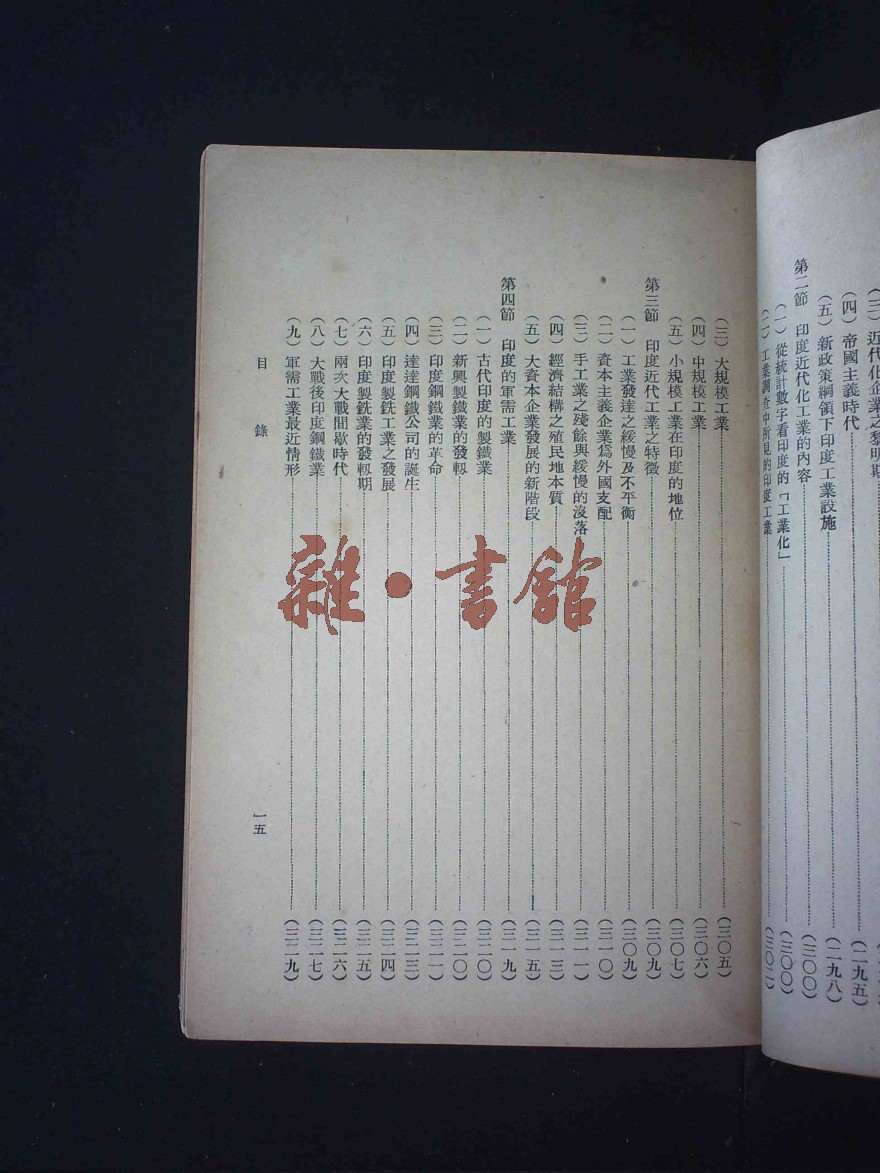 近代化企業之黎明期
(四) 帝國主義時代 (二九五)
(五) 新政策綱領下印度工業設施 (二九八)
第二節 印度近代化工業的內容 (三〇〇)
(一) 從統計數字看印度的「工業化」 (三〇〇)
(二) 工業調查中所見的印度工業 (三〇二)
(三) 大規模工業 (三〇五)
(四) 中規模工業 (三〇六)
(五) 小規模工業在印度的地位 (三〇七)
第三節 印度近代工業之特徵 (三〇九)
(一) 工業發達之緩慢及不平衡 (三〇九)
(二) 資本主義企業爲外國支配 (三一〇)
(三) 手工業之殘餘與緩慢的沒落 (三一一)
(四) 經濟結構之殖民地本質 (三一三)
(五) 大資本企業發展的新階段 (三一五)
第四節 印度的軍需工業 (三一九)
(一) 古代印度的製鐵業 (三二〇)
(二) 新興製鐵業的發軔 (三二〇)
(三) 印度鋼鐵業的革命 (三二一)
(四) 達達鋼鐵公司的誕生 (三二三)
(五) 印度製銑工業之發展 (三二四)
(六) 印度製銑業的發軔期 (三二五)
(七) 兩次大戰間歇時代 (三二六)
(八) 大戰後印度鋼鐵業 (三二七)
(九) 軍需工業最近情形 (三二九)
目 錄
一五
雜·書館